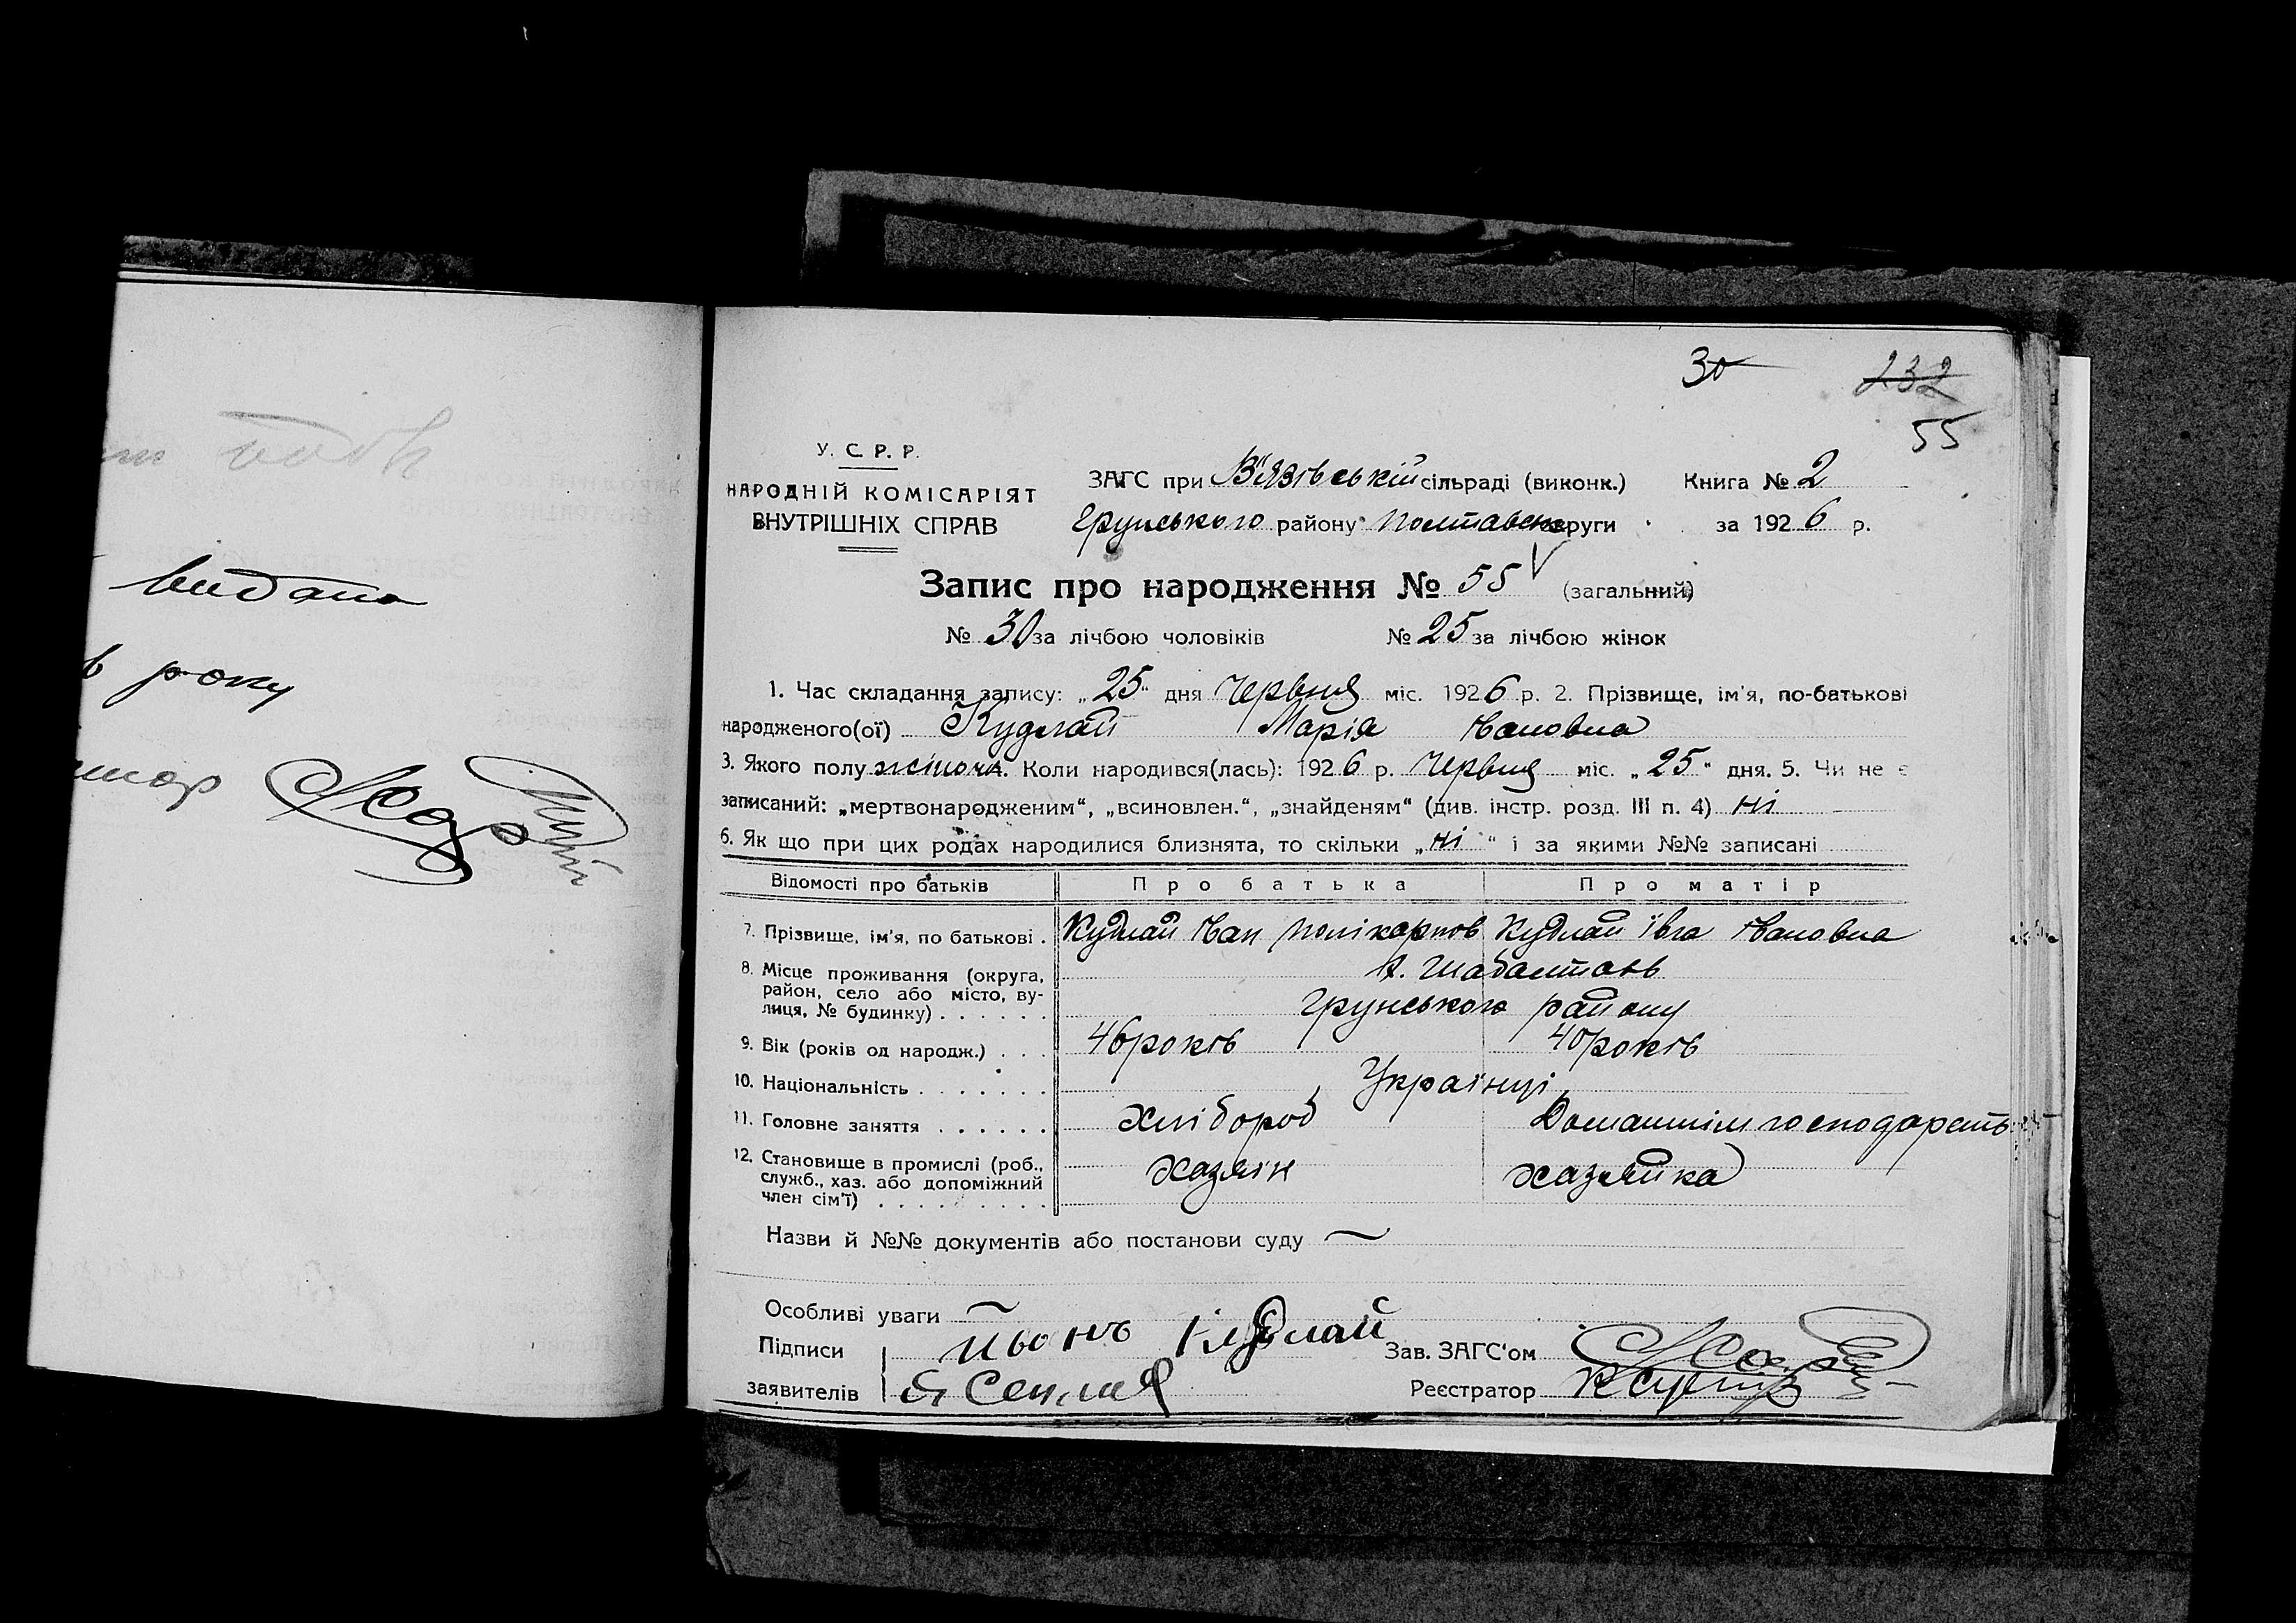 30
232
55
У. С. Р. Р.
НАРОДНІЙ КОМІСАРІЯТ
ВНУТРІШНІХ СПРАВ
ЗАГС при В'язівській сільраді (виконк.) Книга № 2
Грунського району Полтавськ округи за 1926 р.
Запис про народження № 55 (загальний)
№ 30 за лічбою чоловіків № 25 за лічбою жінок
1. Час складання запису: „25“ дня Червня міс. 1926 р. 2. Прізвище, ім'я, по-батькові
народженого(ої) Кудлай Марія Івановна
3. Якого полу жіноч. Коли народився(лась): 1926 р. Червня міс. „25“ дня. 5. Чи не є
записаний: „мертвонародженим“, „всиновлен.“, „знайденям“ (див. інстр. розд. III п. 4) ні
6. Як що при цих родах народилися близнята, то скільки „ні“ і за якими №№ записані
Відомості про батьків Про батька Про матір
7. Прізвище, ім'я, по батькові . Кудлай Іван Полікарпов Кудлай Івга Івановна
8. Місце проживання (округа,
район, село або місто, ву-
лиця, № будинку) . . . . . .
Грунського району
9. Вік (років од народж.) . . . 46 років 40 років
10. Національність . . . . . . . Українці
11. Головне заняття . . . . . . Хлібороб Домашнім господарств
12. Становище в промислі (роб.,
служб., хаз. або допоміжний
член сім'ї) . . . . . . . . .
хазяїн хазяйка
Назви й №№ документів або постанови суду —
Особливі уваги —
Підписи Кудлай Зав. ЗАГС'ом
заявителів Реєстратор
видана
року